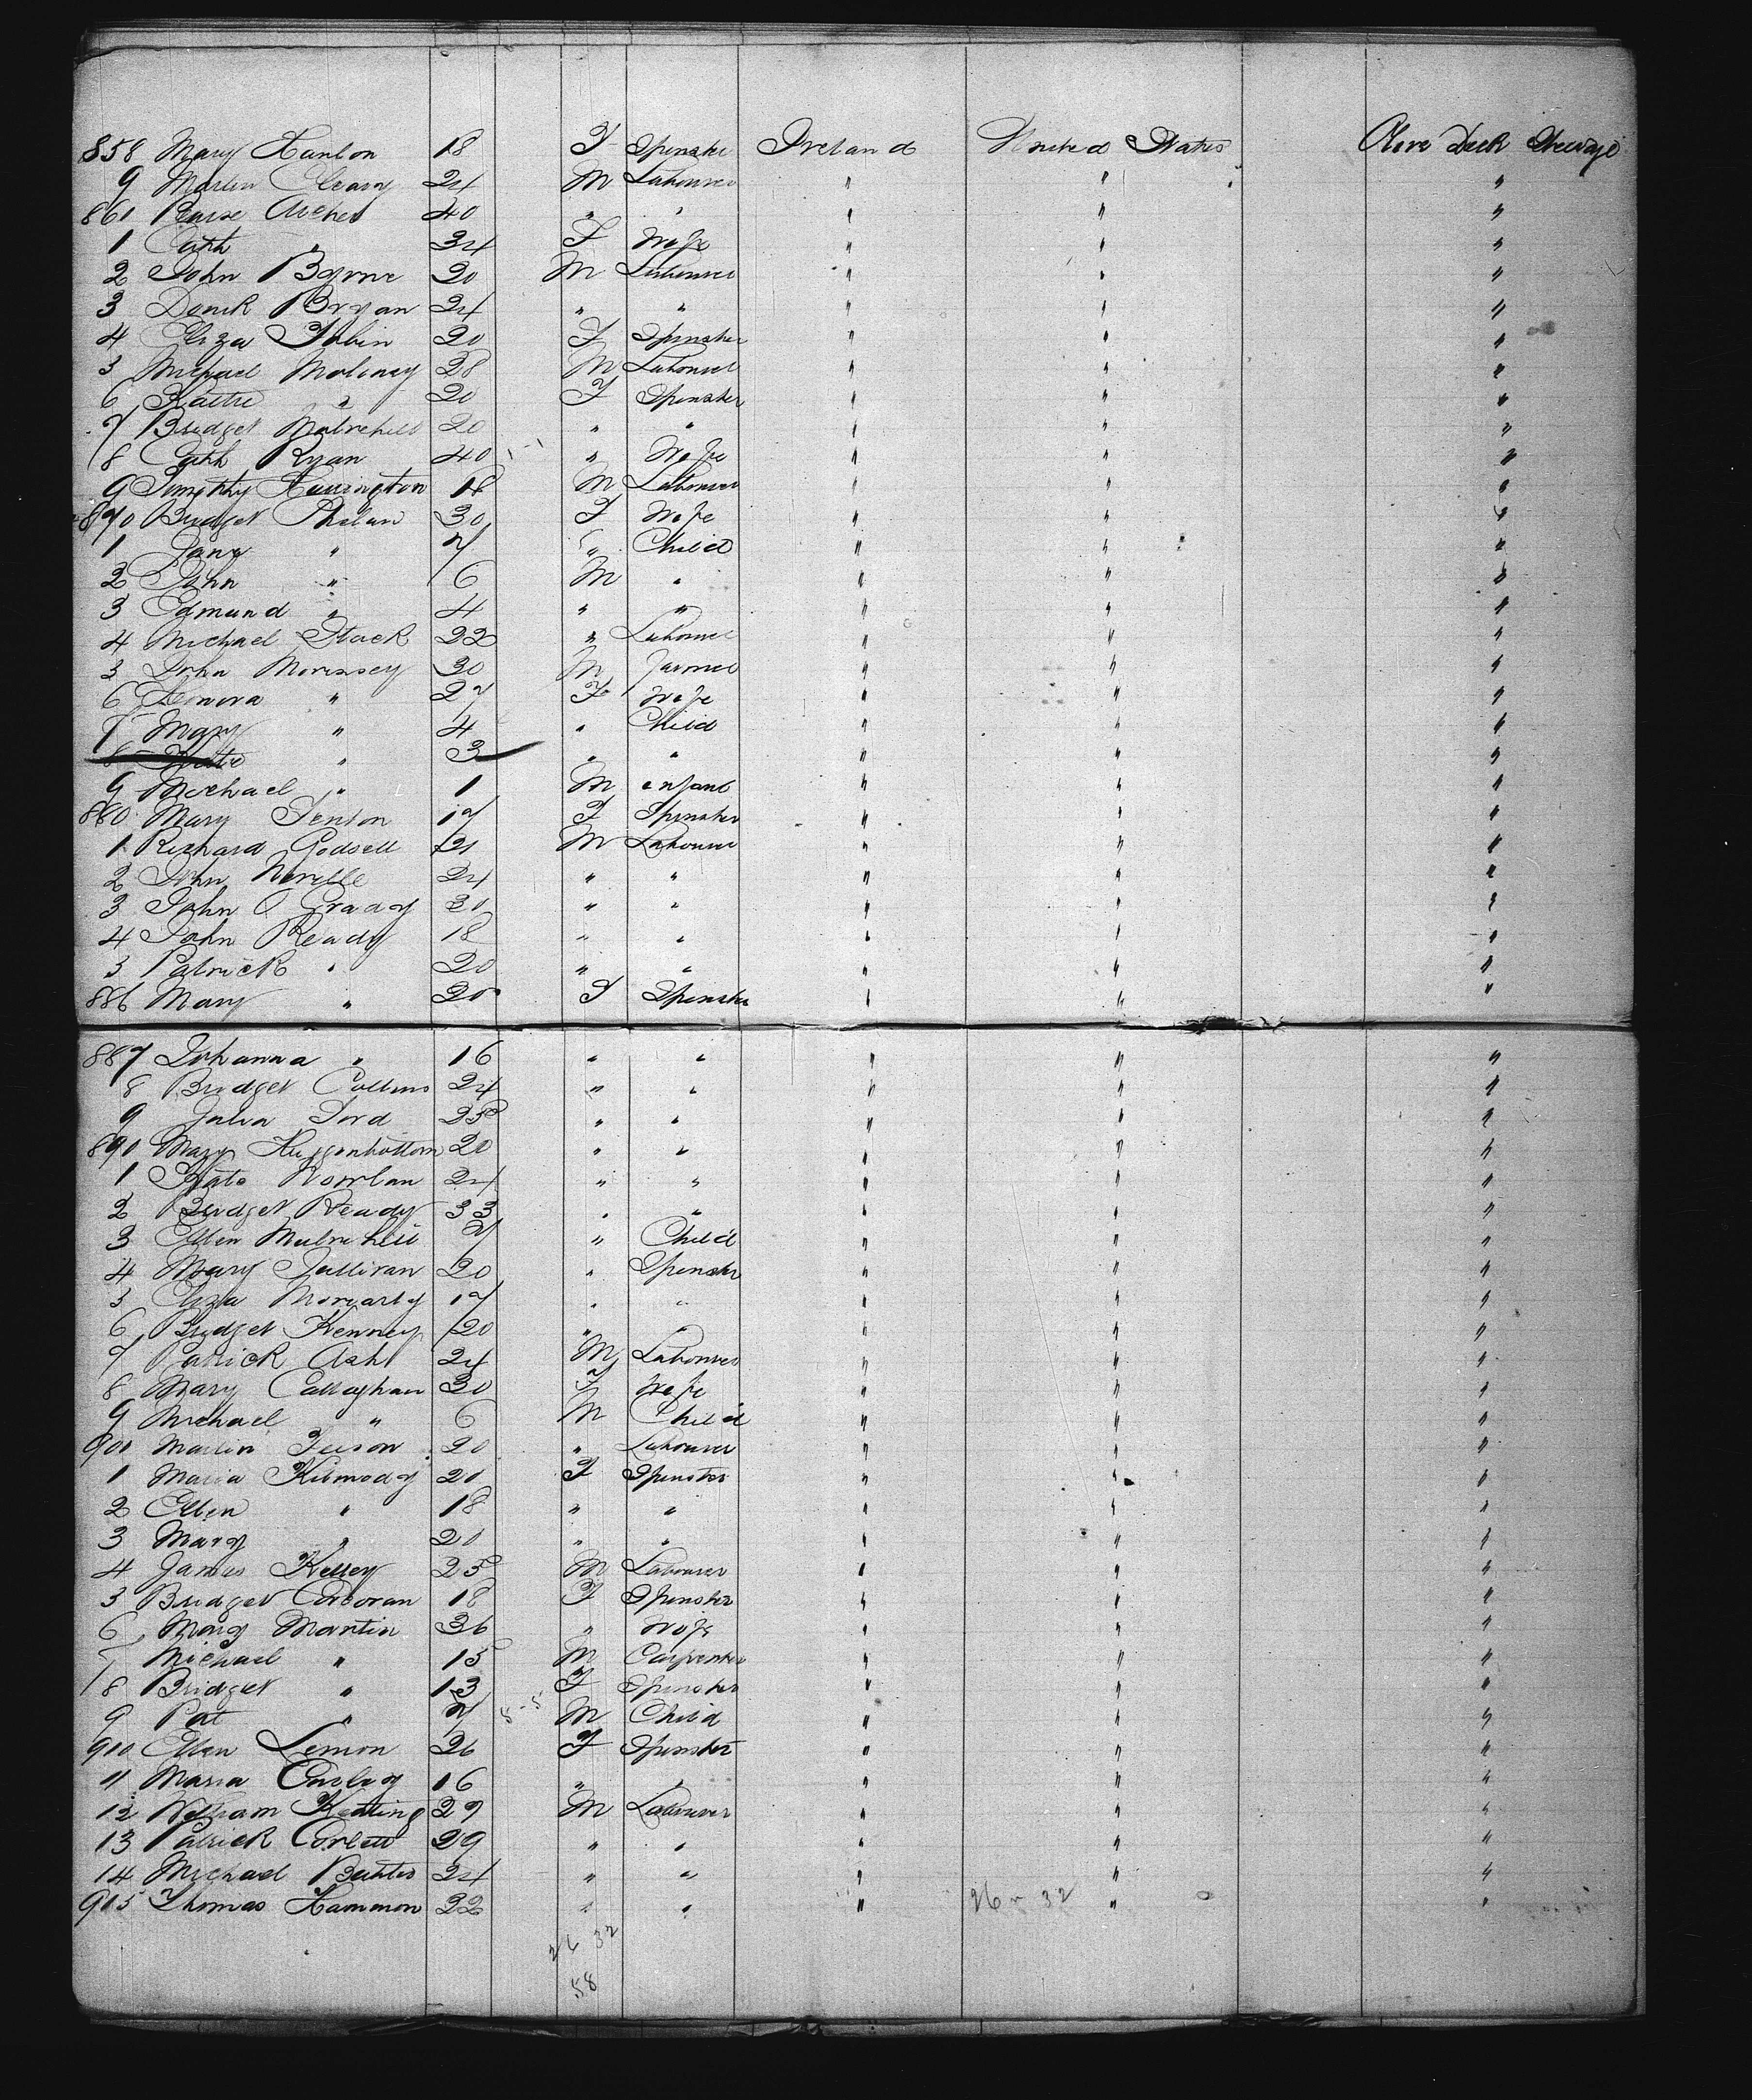 858 Mary Hanlon 18 F Spinster Ireland United States Steerage
9 Martin Cleary 24 M Labourer " " "
860 Archer 40 " " " " "
1 Cath " 34 F Wife " " "
2 John Byrne 20 M Labourer " " "
3 Bryan 24 " " " " "
4 Eliza Tobin 20 F Spinster " " "
5 Michael Moloney 28 M Labourer " " "
6 Katie " 20 F Spinster " " "
7 Bridget Mulrehill 20 " " " " "
8 Cath Ryan 40 " Wife " " "
9 Timothy Harrington 18 M Labourer " " "
870 Bridget Phelan 30 F Wife " " "
1 Jane " 7 " Child " " "
2 John " 6 M " " " "
3 Edmund " 4 " " " " "
4 Michael Stack 22 " Labourer " " "
5 John Morissey 30 M Farmer " " "
6 " 27 F Wife " " "
7 Mary " 4 " Child " " "
8 Kate " 3 " " " " "
9 Michael " 1 M infant " " "
880 Mary Fenton 17 F Spinster " " "
1 Richard Godsell 21 M Labourer " " "
2 John Neville 24 " " " " "
3 John O Grady 30 " " " " "
4 John Ready 18 " " " " "
5 Patrick " 20 " " " " "
886 Mary " 20 F Spinster " " "
887 Johanna " 16 " " " " "
8 Bridget Collins 24 " " " " "
9 Julia Ford 25 " " " " "
890 Mary Higgenbottom 20 " " " " "
1 Kate Nowlan 24 " " " " "
2 Bridget Ready 33 " " " " "
3 Ellen Mulrehill 7 " Child " " "
4 Mary Sullivan 20 " Spinster " " "
5 Eliza Moriarty 17 " " " " "
6 Bridget Kenney 20 " " " " "
7 Patrick Ash 24 M Labourer " " "
8 Mary Callaghan 30 F Wife " " "
9 Michael " 6 M Child " " "
900 Martin 20 " Labourer " " "
1 Maria Kilmody 20 F Spinster " " "
2 Ellen " 18 " " " " "
3 Mary " 20 " " " " "
4 James Kelley 25 M Labourer " " "
5 Bridget Corcoran 18 F Spinster " " "
6 Mary Martin 36 " Wife " " "
7 Michael " 15 M Carpenter " " "
8 Bridget " 13 F Spinster " " "
9 Pat " 7 M Child " " "
910 Ellen Lemon 26 F Spinster " " "
11 Maria 16 " " " " "
12 William Keating 27 M Labourer " " "
13 Patrick Corbett 29 " " " " "
14 Michael 24 " " " " "
915 Thomas Hammon 22 " " " 26 32 " "
26 32
58